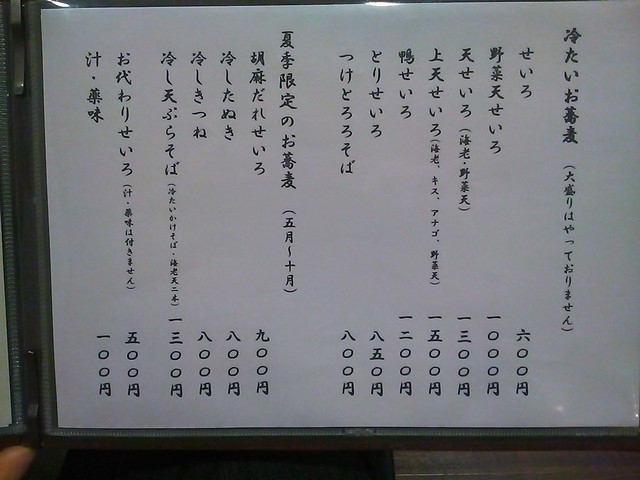 冷たいお蕎麦 (大盛りはやっておりません)
せいろ 六〇〇円
野菜天せいろ 一〇〇〇円
天せいろ(海老・野菜天) 一三〇〇円
上天せいろ(海老、キス、アナゴ、野菜天) 一五〇〇円
鴨せいろ 一二〇〇円
とりせいろ 八五〇円
つけとろろそば 八〇〇円
夏季限定のお蕎麦 (五月〜十月)
胡麻だれせいろ 九〇〇円
冷したぬき 八〇〇円
冷しきつね 八〇〇円
冷し天ぷらそば(冷たいかけそば・海老天二本) 一三〇〇円
お代わりせいろ(汁・薬味は付きません) 五〇〇円
汁・薬味 一〇〇円